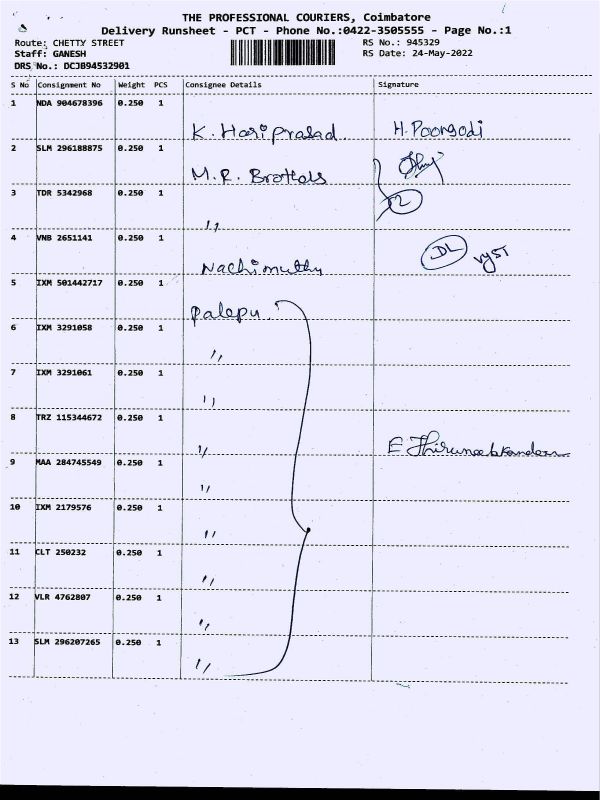 THE PROFESSIONAL COURIERS, Coimbatore
Delivery Runsheet - PCT - Phone No.:0422-3505555 - Page No.:1
Route: CHETTY STREET RS No.: 945329
Staff: GANESH RS Date: 24-May-2022
DRS No.: DCJB94532901
S No Consignment No Weight PCS Consignee Details Signature
1 NDA 904678396 0.250 1
K. Hari Prasad H. Poongodi
2 SLM 296188875 0.250 1
M.R. Brothers
3 TDR 5342968 0.250 1
,,
4 VNB 2651141 0.250 1
Nachimuthu DL
5 IXM 501442717 0.250 1
Palepu
6 IXM 3291058 0.250 1
,,
7 IXM 3291061 0.250 1
,,
8 TRZ 115344672 0.250 1
,, E
9 MAA 284745549 0.250 1
,,
10 IXM 2179576 0.250 1
,,
11 CLT 250232 0.250 1
,,
12 VLR 4762807 0.250 1
,,
13 SLM 296207265 0.250 1
,,